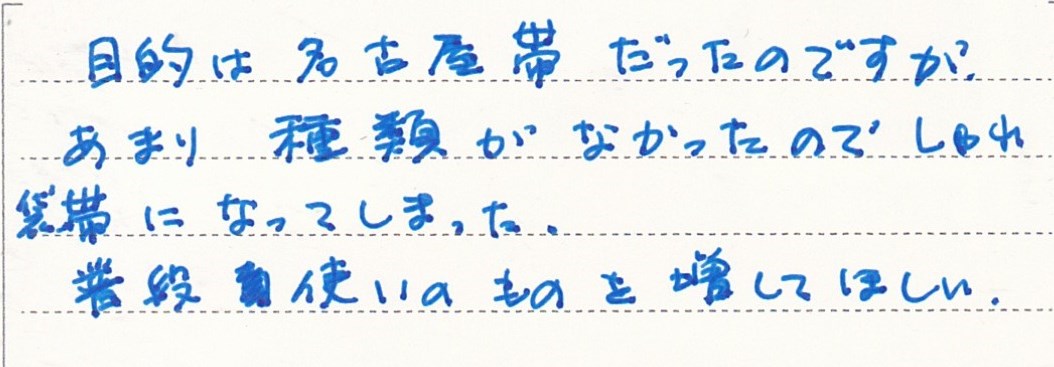 目的は名古屋帯だったのですが、
あまり種類がなかったのでしゃれ
袋帯になってしまった。
普段使いのものを増してほしい。